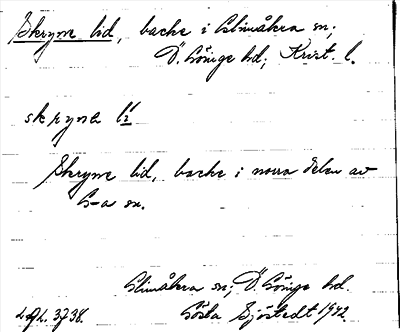 Skryne lid, backe i Glimåkra sn;
Ö. Göinge hd; Krist. l.
skryna li
Skryne lid, backe i norra delen av
G-a sn.
Glimåkra sn; Ö. Göinge hd.
Gösta Sjöstedt 1942